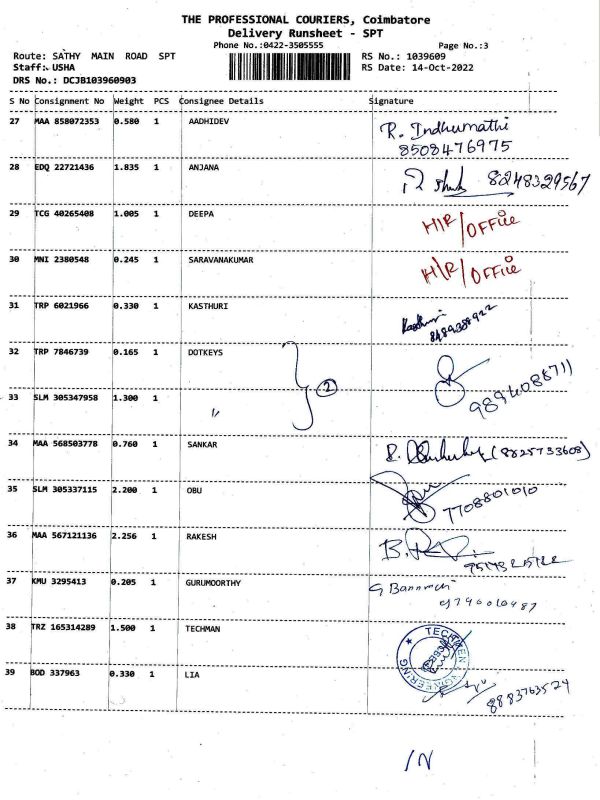 THE PROFESSIONAL COURIERS, Coimbatore
Delivery Runsheet - SPT
Phone No.:0422-3505555 Page No.:3
Route: SATHY MAIN ROAD SPT RS No.: 1039609
Staff:- USHA RS Date: 14-Oct-2022
DRS No.: DCJB103960903
S No Consignment No Weight PCS Consignee Details Signature
27 MAA 858072353 0.580 1 AADHIDEV R. Indhumathi
8508476975
28 EDQ 22721436 1.835 1 ANJANA 8248329567
29 TCG 40265408 1.005 1 DEEPA H/R/OFFice
30 MNI 2380548 0.245 1 SARAVANAKUMAR H/R/OFFice
31 TRP 6021966 0.330 1 KASTHURI Kasthuri
32 TRP 7846739 0.165 1 DOTKEYS
2
33 SLM 305347958 1.300 1 〃
34 MAA 568503778 0.760 1 SANKAR (8825733608)
35 SLM 305337115 2.200 1 OBU 7708801010
36 MAA 567121136 2.256 1 RAKESH
37 KMU 3295413 0.205 1 GURUMOORTHY
38 TRZ 165314289 1.500 1 TECHMAN
39 BOD 337963 0.330 1 LIA 8883763524
IN